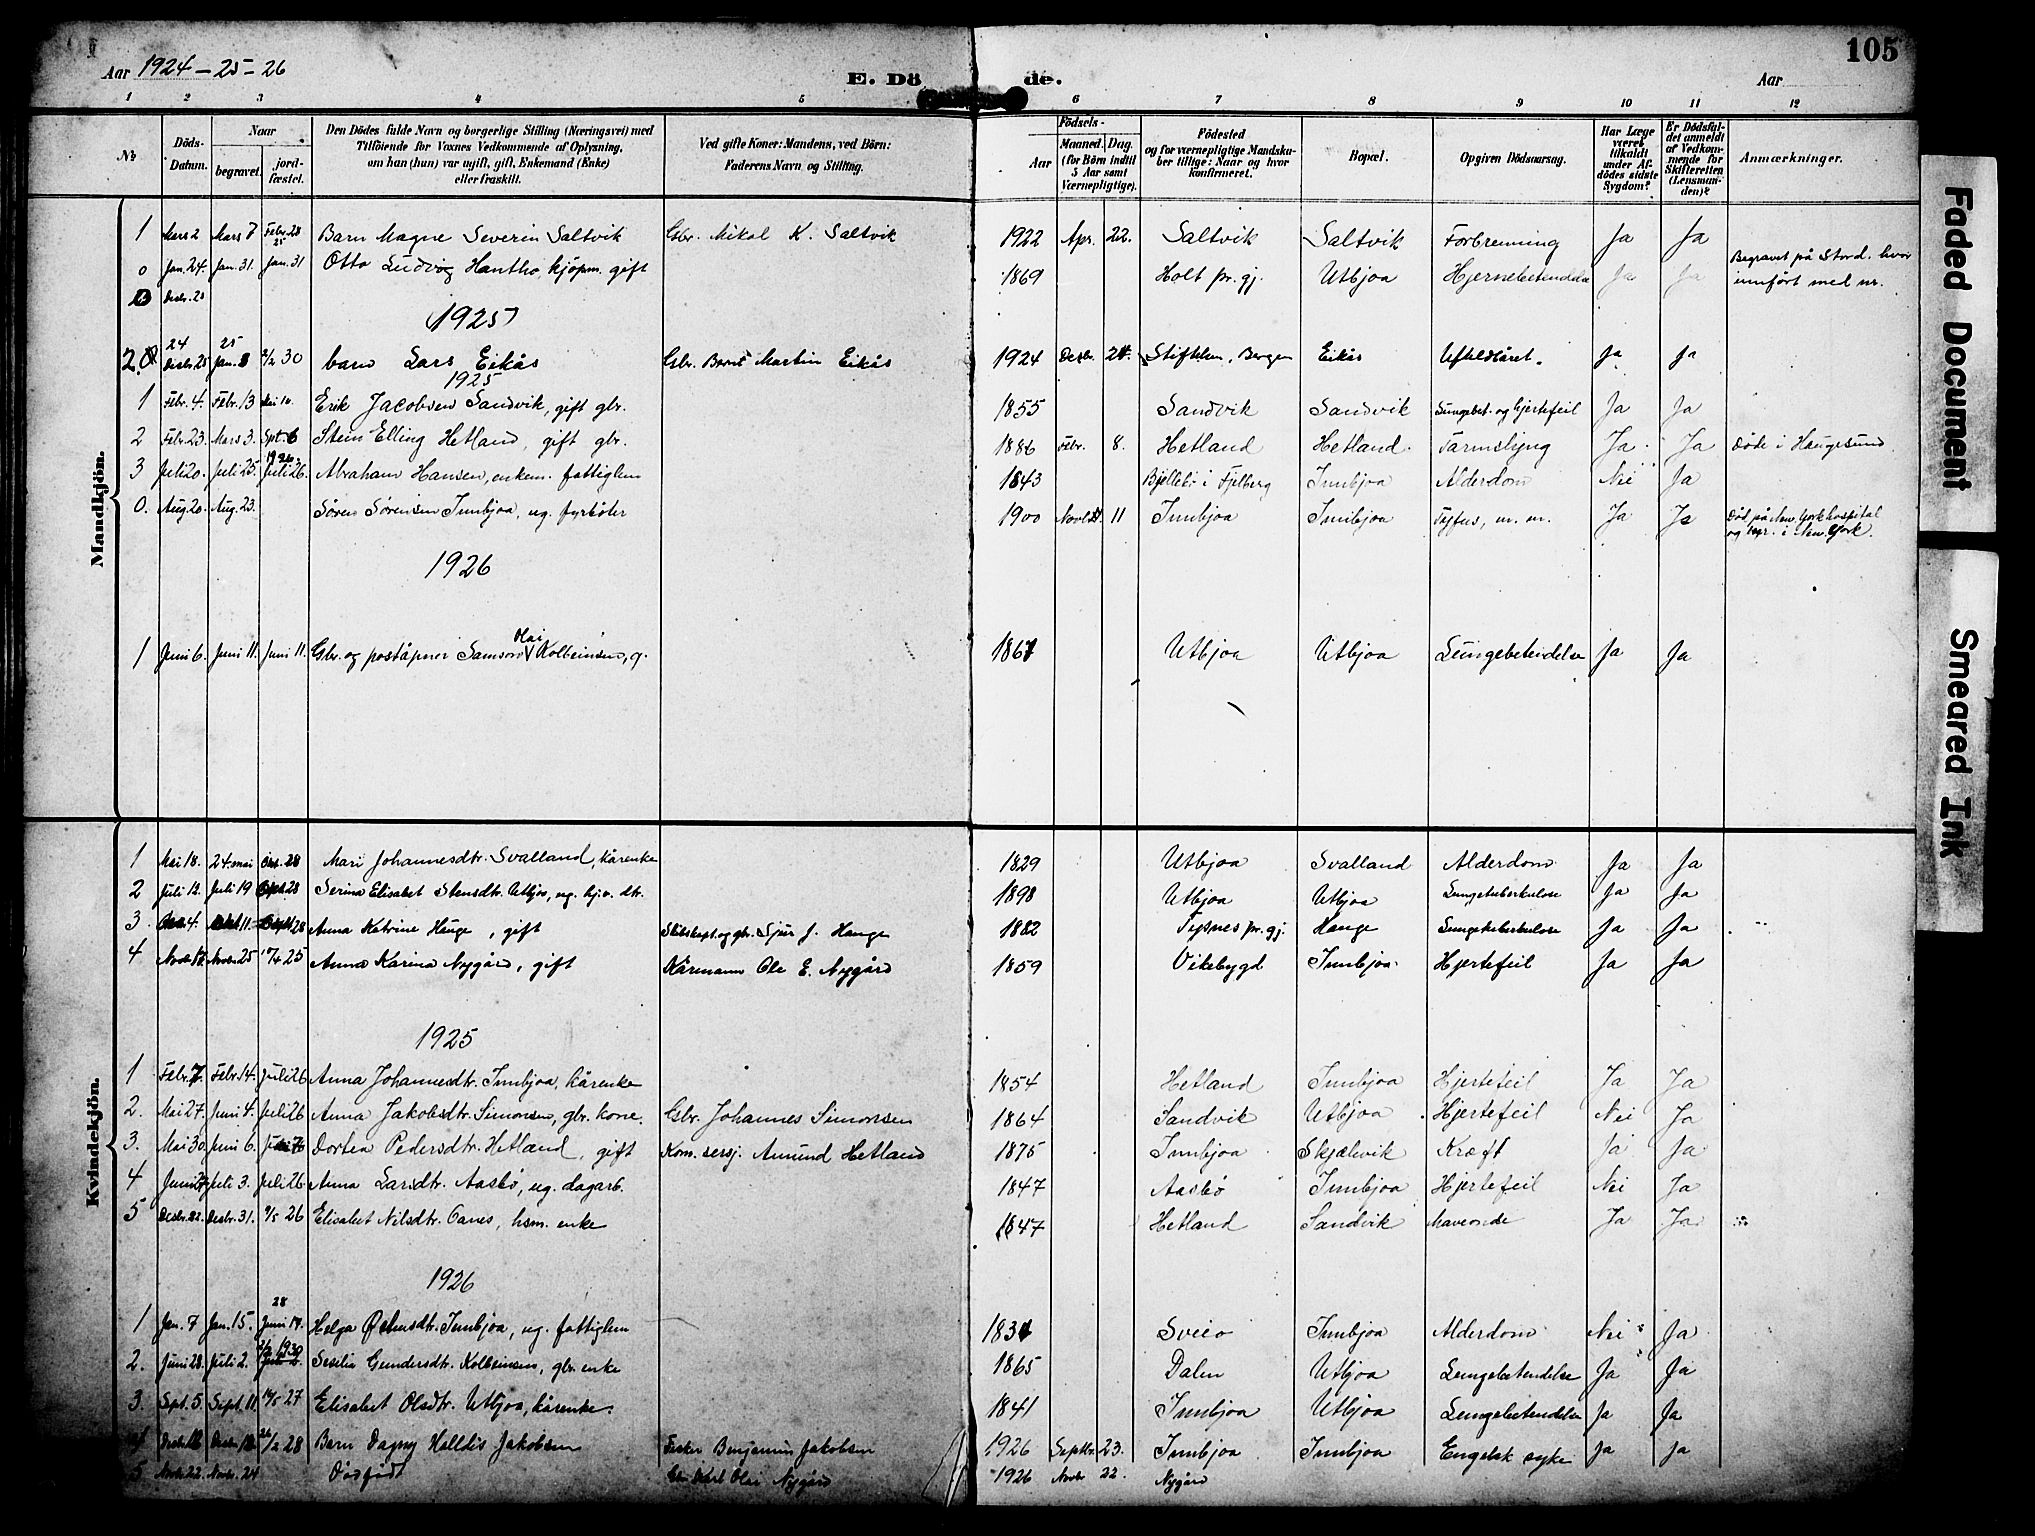 Aar 1924 - 25 - 26
E. Döde.
Aar
105
1 2 3 4 5 6 7 8 9 10 11 12
No.
Döds-Datum.
Naar
begravet.
jordfæstet.
Den Dödes fulde Navn og borgerlige Stilling (Næringsvei) med Tilföiende for Voxnes Vedkommende af Oplysning, om han (hun) var ugift, gift, Enkemand (Enke) eller fraskilt.
Ved gifte Koner: Mandens, ved Börn: Faderens Navn og Stilling.
Födsels-
Aar
Maaned. Dag.
(for Börn indtil 5 Aar samt Værnepligtige).
Födested og for værnepligtige Mandskaber tillige: Naar og hvor konfirmeret.
Bopæl.
Opgiven Dödsaarsag.
Har Læge været tilkaldt under Afdödes sidste Sygdom?
Er Dödsfaldet anmeldt af Vedkommende for Skifteretten (Lensmanden)?
Anmærkninger.
Mandkjön.
1 Mars 2 Mars 7 Febr. 28 25 Barn Magne Severin Saltvik Gbr. Mikal K. Saltvik 1922 Apr. 22. Saltvik Saltvik Forbrenning Ja Ja
0 Jan. 24. Jan. 31. Jan. 31 Otto Ludvig Hantho, kjöpm. gift 1869 Holt pr. gj. Utbjoa Hjernebetendelse Ja Ja Begravet på Stord. hvor innfört med nr.
0 Desbr. 20
1925
2 24 Desbr. 25 25 Jan. 8 2/2 30 barn Lars Eikås Gbr. Bernt Martin Eikås 1924 Desbr. 24. Stiftelsen, Bergen Eikås Ufuldbåret. Ja Ja
1925
1 Febr. 4. Febr. 13 Erik Jacobsen Sandvik, gift gbr. 1855 Sandvik Sandvik Lungebet. og hjertefeil Ja Ja
2 Febr. 23. Mars 3. Spt. 6 Stein Elling Hetland, gift gbr. 1886 Febr. 8. Hetland Hetland Tarmslyng Ja Ja Döde i Haugesund
3 Juli 20. Juli 25. 1926 Juli 26. Abraham Hansen, enkem. fattiglem 1843 Bjellebö i Fjelberg Innbjoa Alderdom Nei Ja
0. Aug. 20. Aug. 23. Sören Sörensen Innbjoa, ug. fyrböter 1900 11 Innbjoa Innbjoa Tyfus, m. m. Ja Ja Död på New York hospital og begr. i New York.
1926
1 Juni 6. Juni 11. Juni 11. Gbr. og poståpner Samson Olai Kolbeinsen, g. 1867 Utbjoa Utbjoa Lungebetendelse Ja Ja
Kvindekjön.
1 Mai 18. 24. mai 28 Mari Johannesdtr. Svalland, kårenke 1829 Utbjoa Svalland Alderdom Ja Ja
2 Juli 12. Juli 19 Sept. 28 Serina Elisabet Stensdtr. Utbjoa, ug. dtr. 1898 Utbjoa Utbjoa Lungetuberkulose Ja Ja
3 4. 11 28 Anna Katrine Hauge, gift Skibskapt. og gbr. Sjur J. Hauge 1882 Tysnes pr. gj. Hauge Lungetuberkulose Ja Ja
4 Novbr. 17. Novbr. 25 25 Anna Karina Nygård, gift Kårmann Ole E. Nygård 1859 Vikebygd Innbjoa Hjertefeil Ja Ja
1925
1 Febr. 7. Febr. 14. Juli 26 Anna Johannesdtr. Innbjoa, kårenke 1854 Hetland Innbjoa Hjertefeil Ja Ja
2. Mai 27. Juni 4. Juli 26 Anna Jakobsdtr. Simonsen, gbr. kone. Gbr. Johannes Simonsen 1864 Sandvik Utbjoa Hjertefeil Nei Ja
3. Mai 30. Juni 6. Dortea Pedersdtr. Hetland, gift Kom. sersj. Amund Hetland 1875 Innbjoa Skjælevik Kræft Ja Ja
4 Juni 27. Juli 3. Juli 26. Anna Larsdtr. Aasbö, ug. dagarb. 1847 Aasbö Innbjoa Hjertefeil Nei Ja
5 Desbr. 22. Desbr. 31. 9/5 26 Elisabet Nilsdtr. Oanes, hsm. enke 1847 Hetland Sandvik Maveonde Ja Ja
1926
1 Jan. 7 Jan. 15. 28 Juni 14. Helga Östensdtr. Innbjoa, ug. fattiglem 1831 Sveio Innbjoa Alderdom Nei Ja
2. Juni 28. Juli 2. 1930 Seselia Gundersdtr. Kolbeinsen, gbr. enke 1865 Dalen Utbjoa Lungebetendelse Ja Ja
3. Sept. 5. Sept. 11. 27 Elisabet Olsdtr. Utbjoa, kårenke. 1841 Innbjoa Utbjoa Lungebetendelse Ja Ja
4 Desbr. Desbr. 26/2 28 Barn Dagny Halldis Jakobsen Fisker Benjamin Jakobsen 1926 Septbr. 23. Innbjoa Innbjoa Engelsk syke Ja Ja
5 Novbr. 22. Novbr. 24 Dödfödt Gbr. Karl Olai Nygård 1926 Novbr. 22. Nygård
Faded Document
Smeared Ink